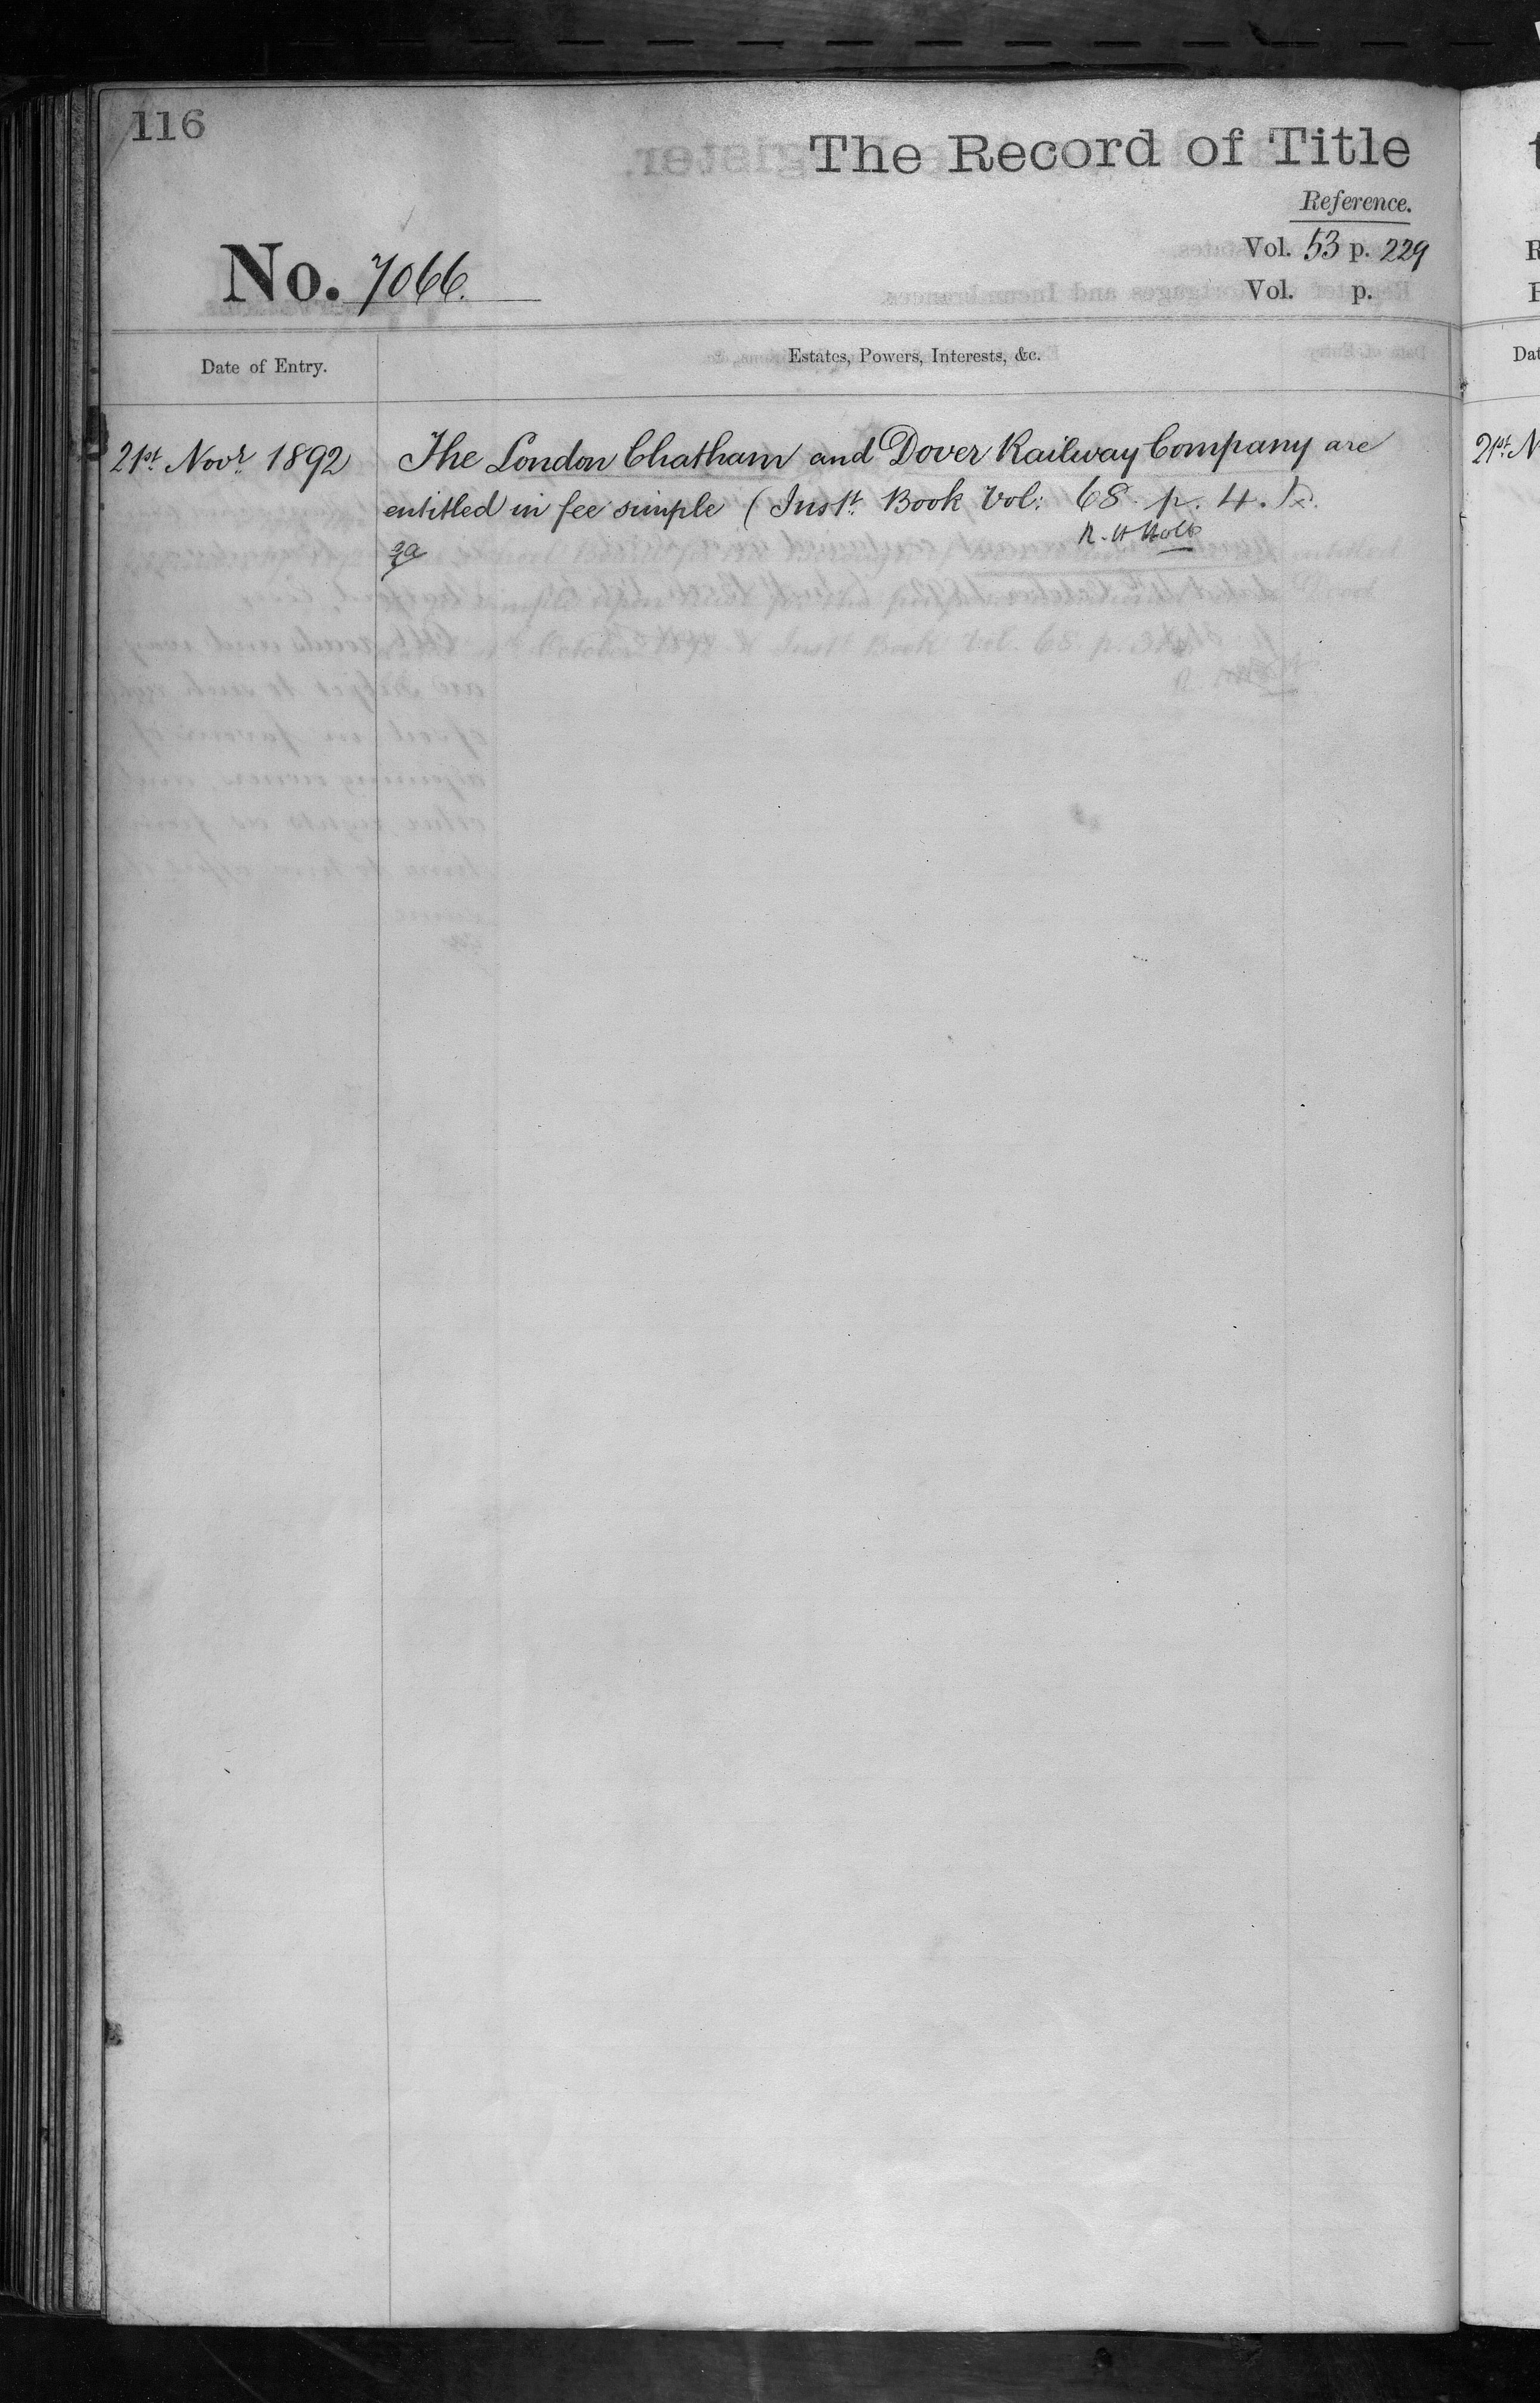 116
The Record of Title
Reference.
No. 7066.
Vol. 53 p. 229
Vol. p.
Date of Entry.
Estates, Powers, Interests, &c.
21st Novr. 1892
The London Chatham and Dover Railway Company are
entitled in fee simple (Inst. Book Vol: 68. p. 4.)
R. H Holt
21st N